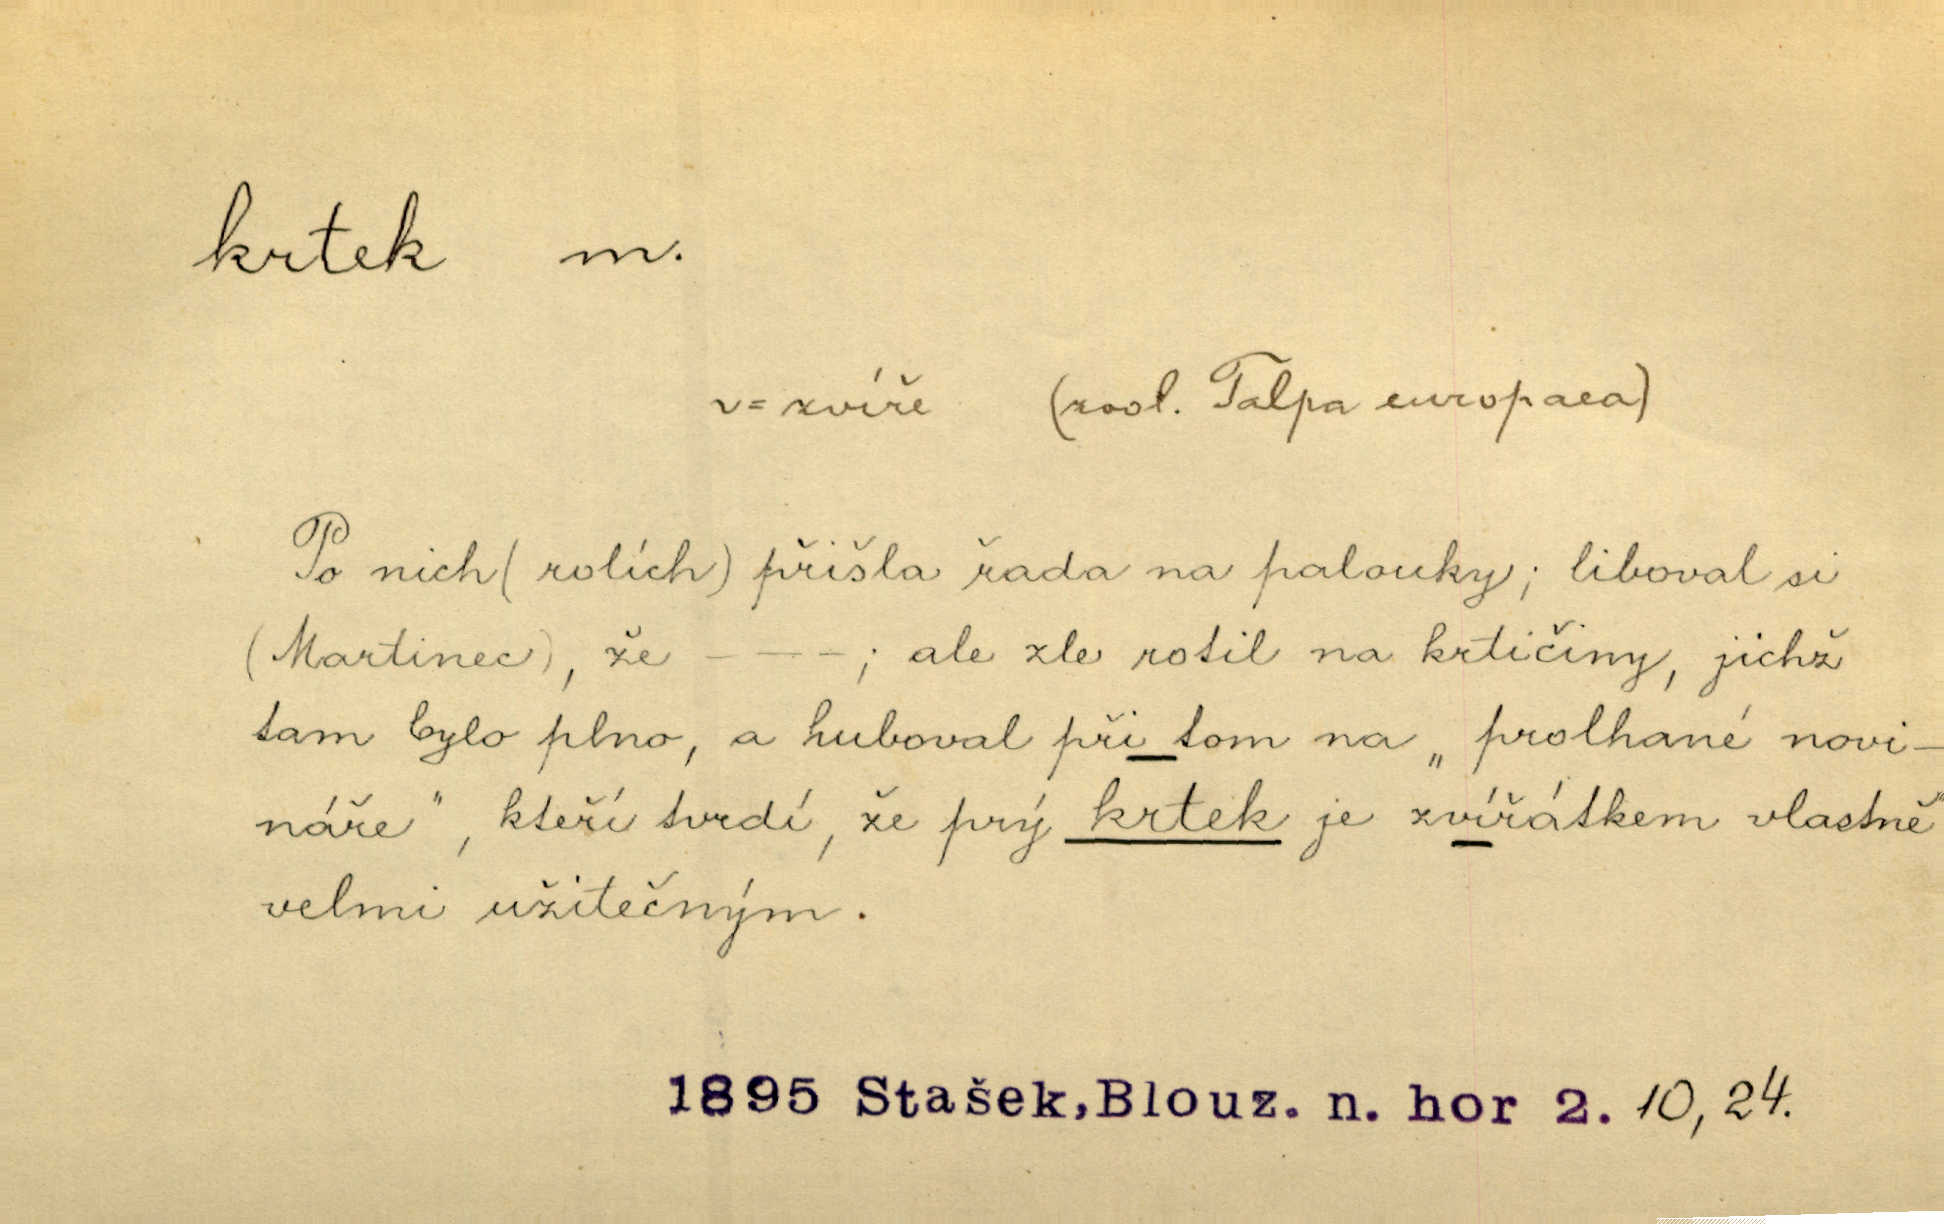 krtek m.
v= zvíře (zool. Talpa europaea)
Po nich (rolích) přišla řada na palouky; liboval si
(Martinec), že – – – –; ale zle rotil na krtičiny, jichž
tam bylo plno, a huboval při tom na „prolhané novi-
náře", kteří tvrdí, že prý krtek je zvířátkem vlastně
velmi užitečným.
1895 Stašek,Blouz. n. hor 2. 10, 24.